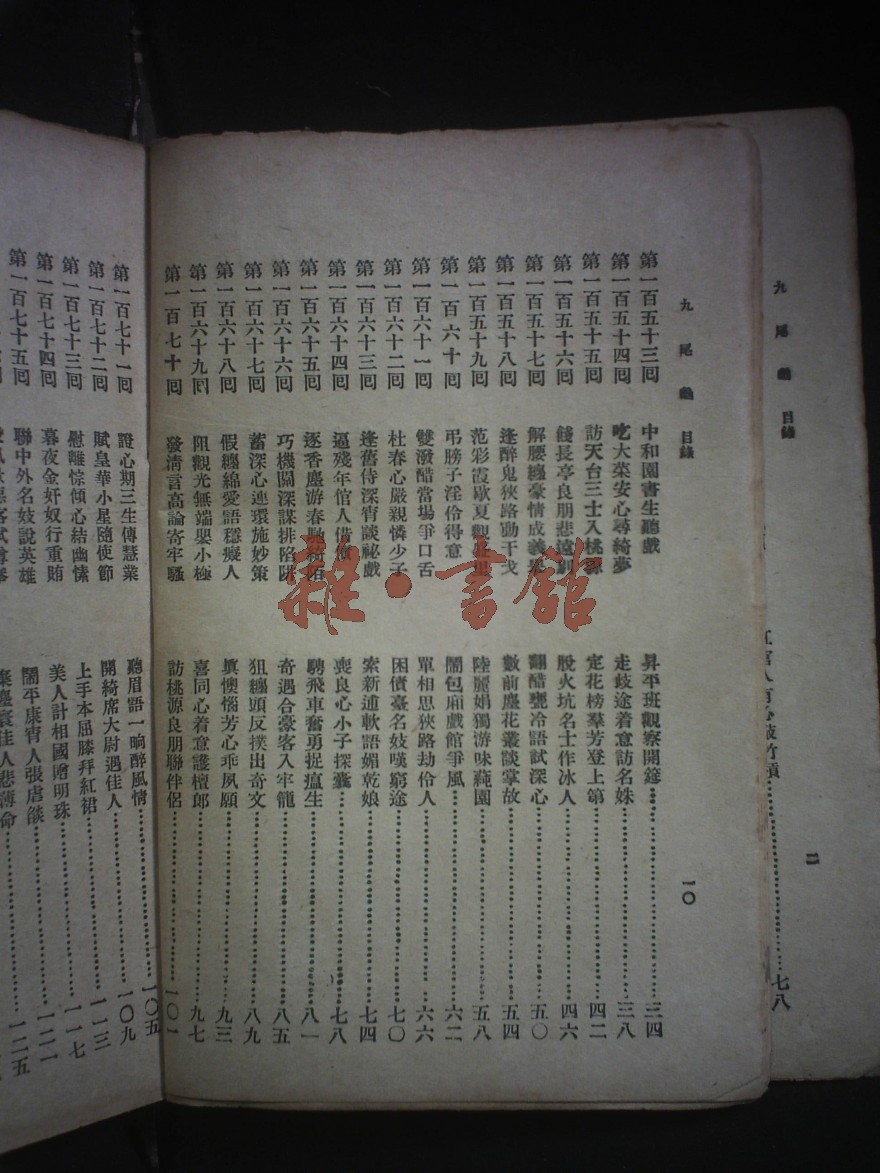 九尾龜 目錄
二
七八
九尾龜 目錄
一〇
第一百五十三回 中和園書生聽戲 昇平班觀察開筵 三四
第一百五十四回 吃大菜安心尋綺夢 走歧途着意訪名姝 三八
第一百五十五回 訪天台三士入桃源 定花榜羣芳登上第 四二
第一百五十六回 餞長亭良朋悲遠別 脫火坑名士作冰人 四六
第一百五十七回 解腰纏豪情成義舉 翻醋甕冷語試深心 五〇
第一百五十八回 逢醉鬼狹路動干戈 數前塵花叢談掌故 五四
第一百五十九回 范彩霞歇夏觀盛里 陸麗娟獨游味蒓園 五八
第一百六十回 弔膀子淫伶得意 鬧包廂戲館爭風 六二
第一百六十一回 雙潑醋當場爭口舌 單相思狹路劫伶人 六六
第一百六十二回 杜春心嚴親憐少子 困債臺名妓嘆窮途 七〇
第一百六十三回 逢舊侍深宵談祕戲 索新逋軟語媚乾娘 七四
第一百六十四回 逼殘年倌人借債 喪良心小子探囊 七八
第一百六十五回 逐香塵游春馳綺陌 騁飛車奮勇捉瘟生 八一
第一百六十六回 巧機關深謀排陷阱 奇遇合豪客入牢籠 八五
第一百六十七回 蓄深心連環施妙策 狙纏頭反撲出奇文 八九
第一百六十八回 假纏綿愛語穩癡人 眞懊惱芳心乖夙願 九三
第一百六十九回 阻觀光無端嬰小極 喜同心着意護檀郎 九七
第一百七十回 發清言高論寄牢騷 訪桃源良朋聯伴侶 一〇一
第一百七十一回 證心期三生傳慧業 聽眉語一晌醉風情 一〇五
第一百七十二回 賦皇華小星隨使節 開綺席大尉遇佳人 一〇九
第一百七十三回 慰離悰傾心結幽愫 上手本屈膝拜紅裙 一一三
第一百七十四回 暮夜金奸奴行重賄 美人計相國贈明珠 一一七
第一百七十五回 聯中外名妓說英雄 鬧平康宵人張虐燄 一二一
佳人悲薄命 一二五
雜·書館